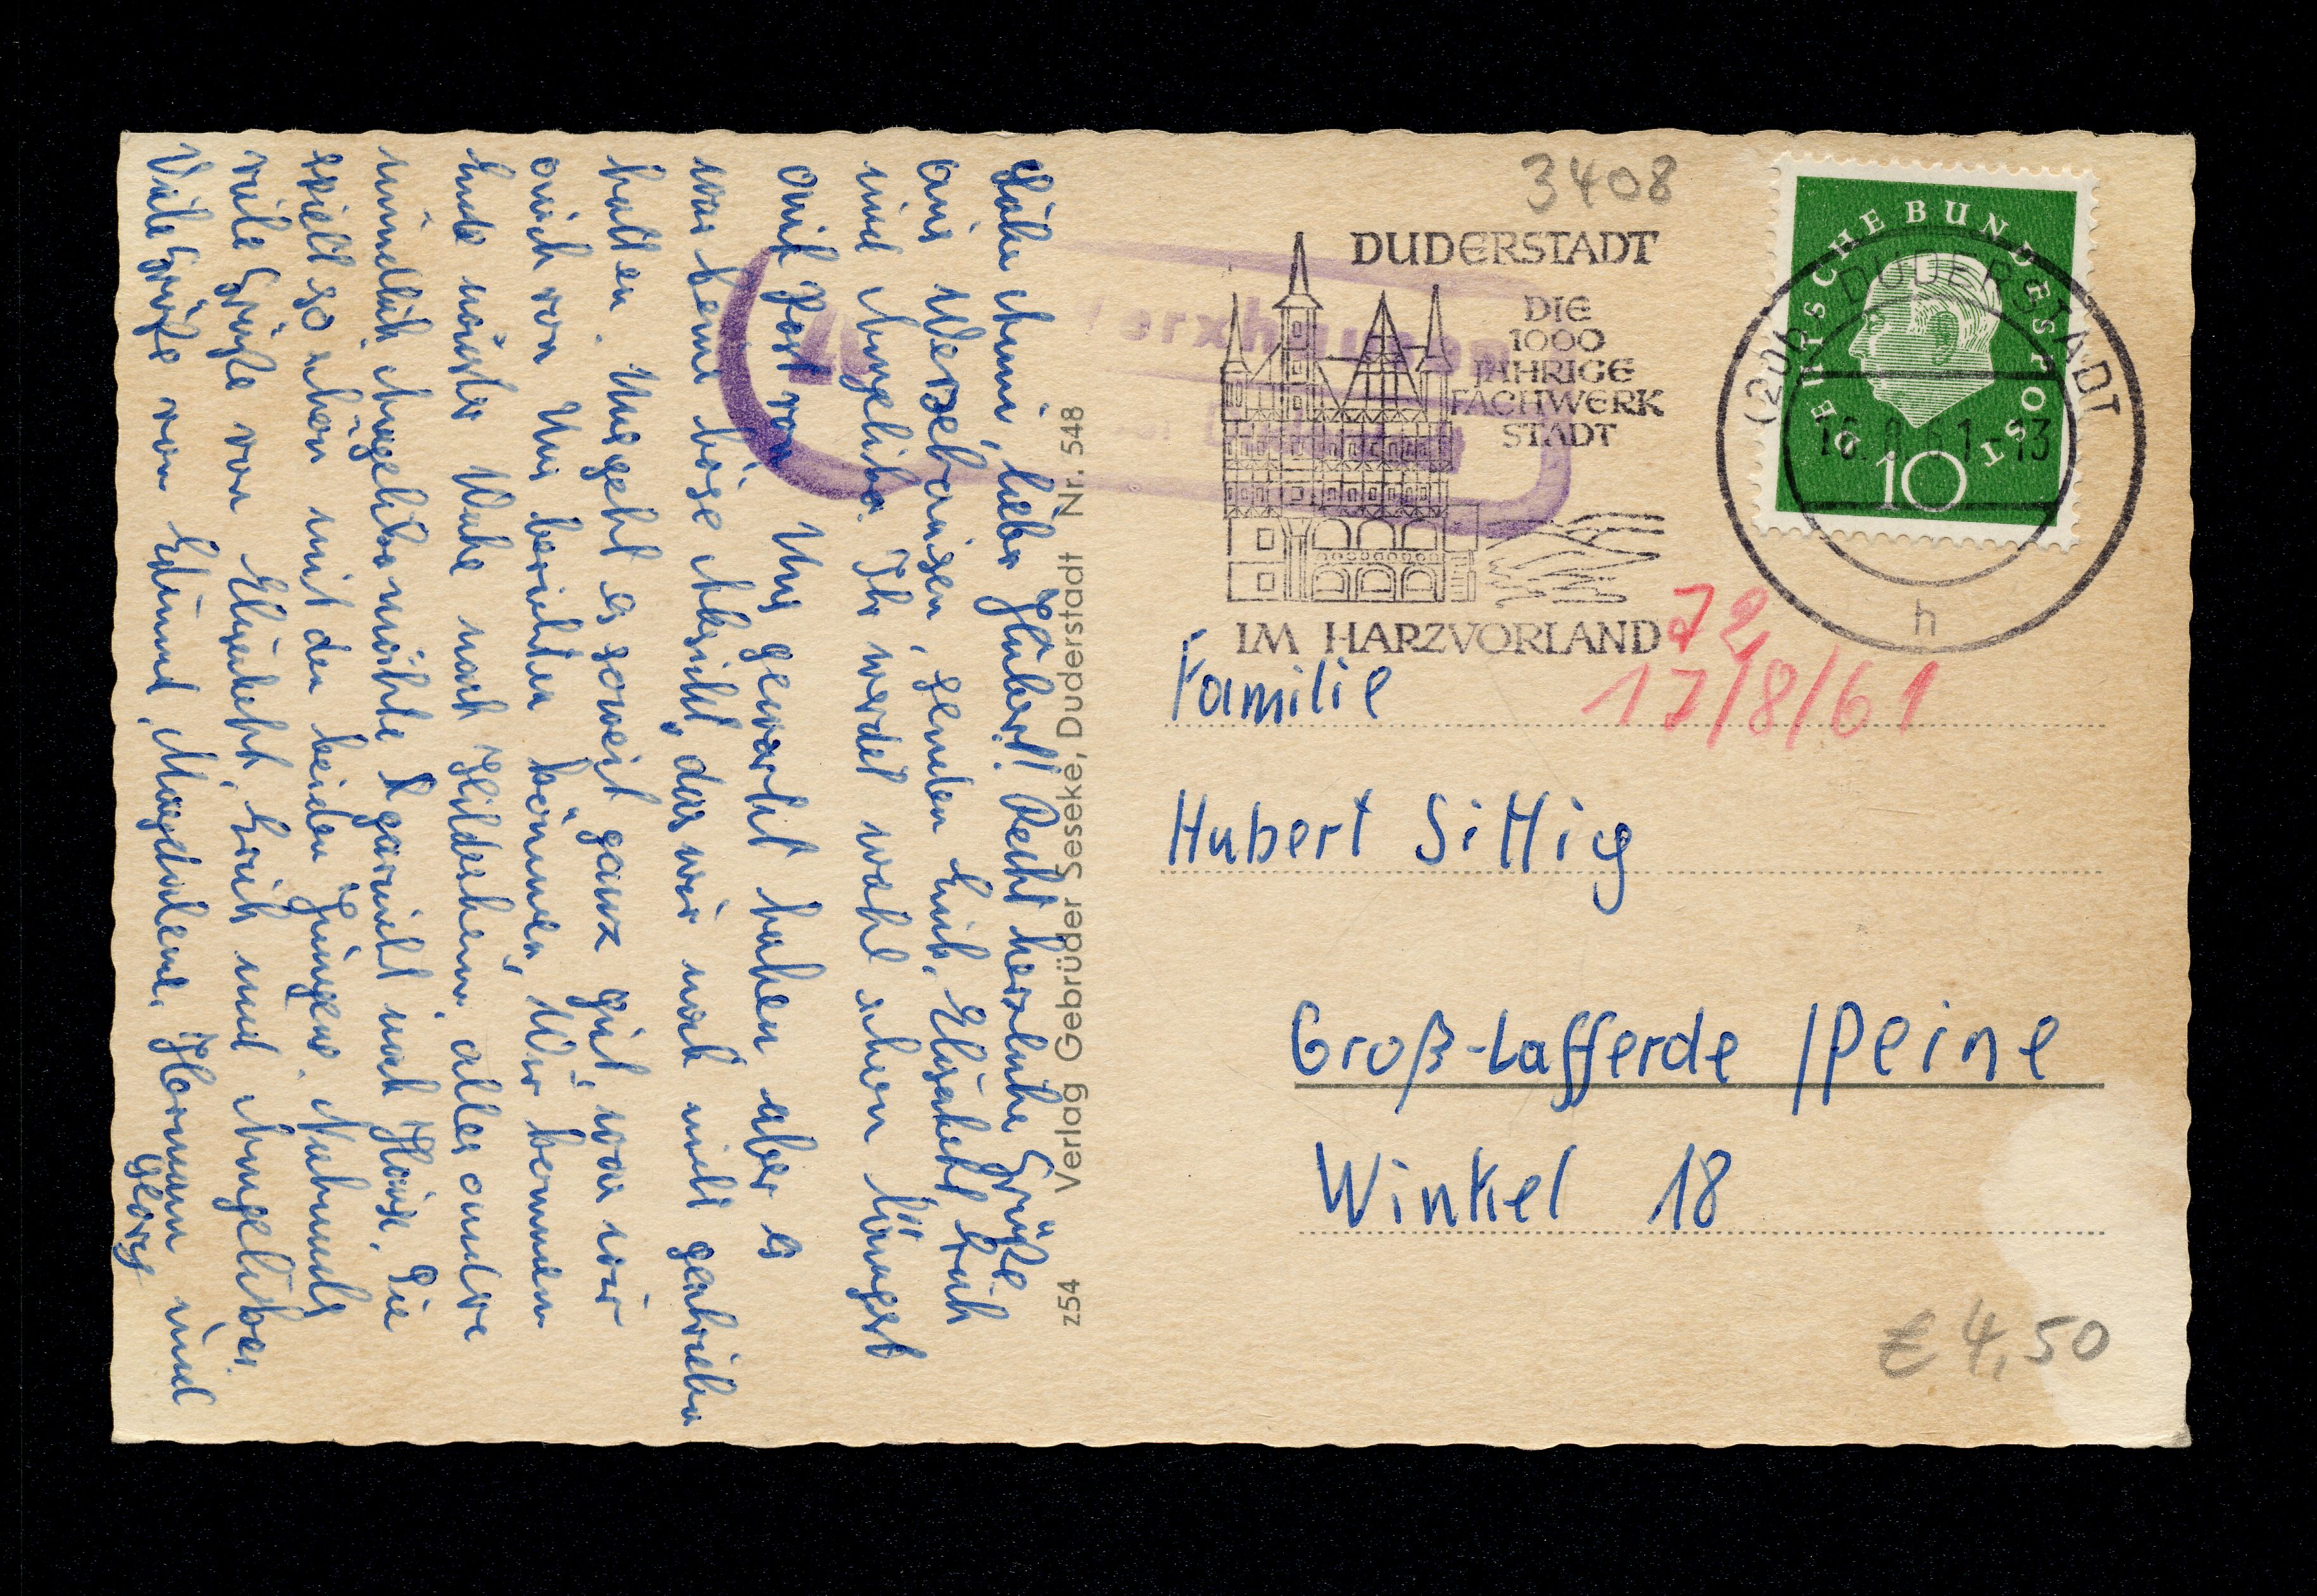 Liebe Anni, lieber Hubert! Recht herzliche Grüße
aus Werxhausen, senden Euch, Elisabeth Erich
und Angelika. Ihr werdet wohl schon längst
auf Post von Uns gewartet haben aber es
war keine böse Absicht, das wir noch nicht geschrieben
hatten. Uns geht es soweit ganz gut, was wir
auch von Uns berichten können. Wir kommen
Ende nächster Woche nach Hildesheim, alles andere
mündlich. Angelika möchte garnicht nach Hause. Die
spielt so schön mit den beiden Jungens. Nochmals
viele Grüße von Elisabeth, Erich und Angelika.
Viele Grüße von Edmund, Magdalene, Hermann und
Georg
z54 Verlag Gebrüder Seseke, Duderstadt Nr. 548
3408
DUDERSTADT
DIE
1000
JÄHRIGE
FACHWERK
STADT
IM HARZVORLAND
DEUTSCHE BUNDESPOST
10
DUDERSTADT
16.8.61-13
h
17/8/61
Familie
Hubert Sittig
Groß-Lafferde /Peine
Winkel 18
€ 4,50